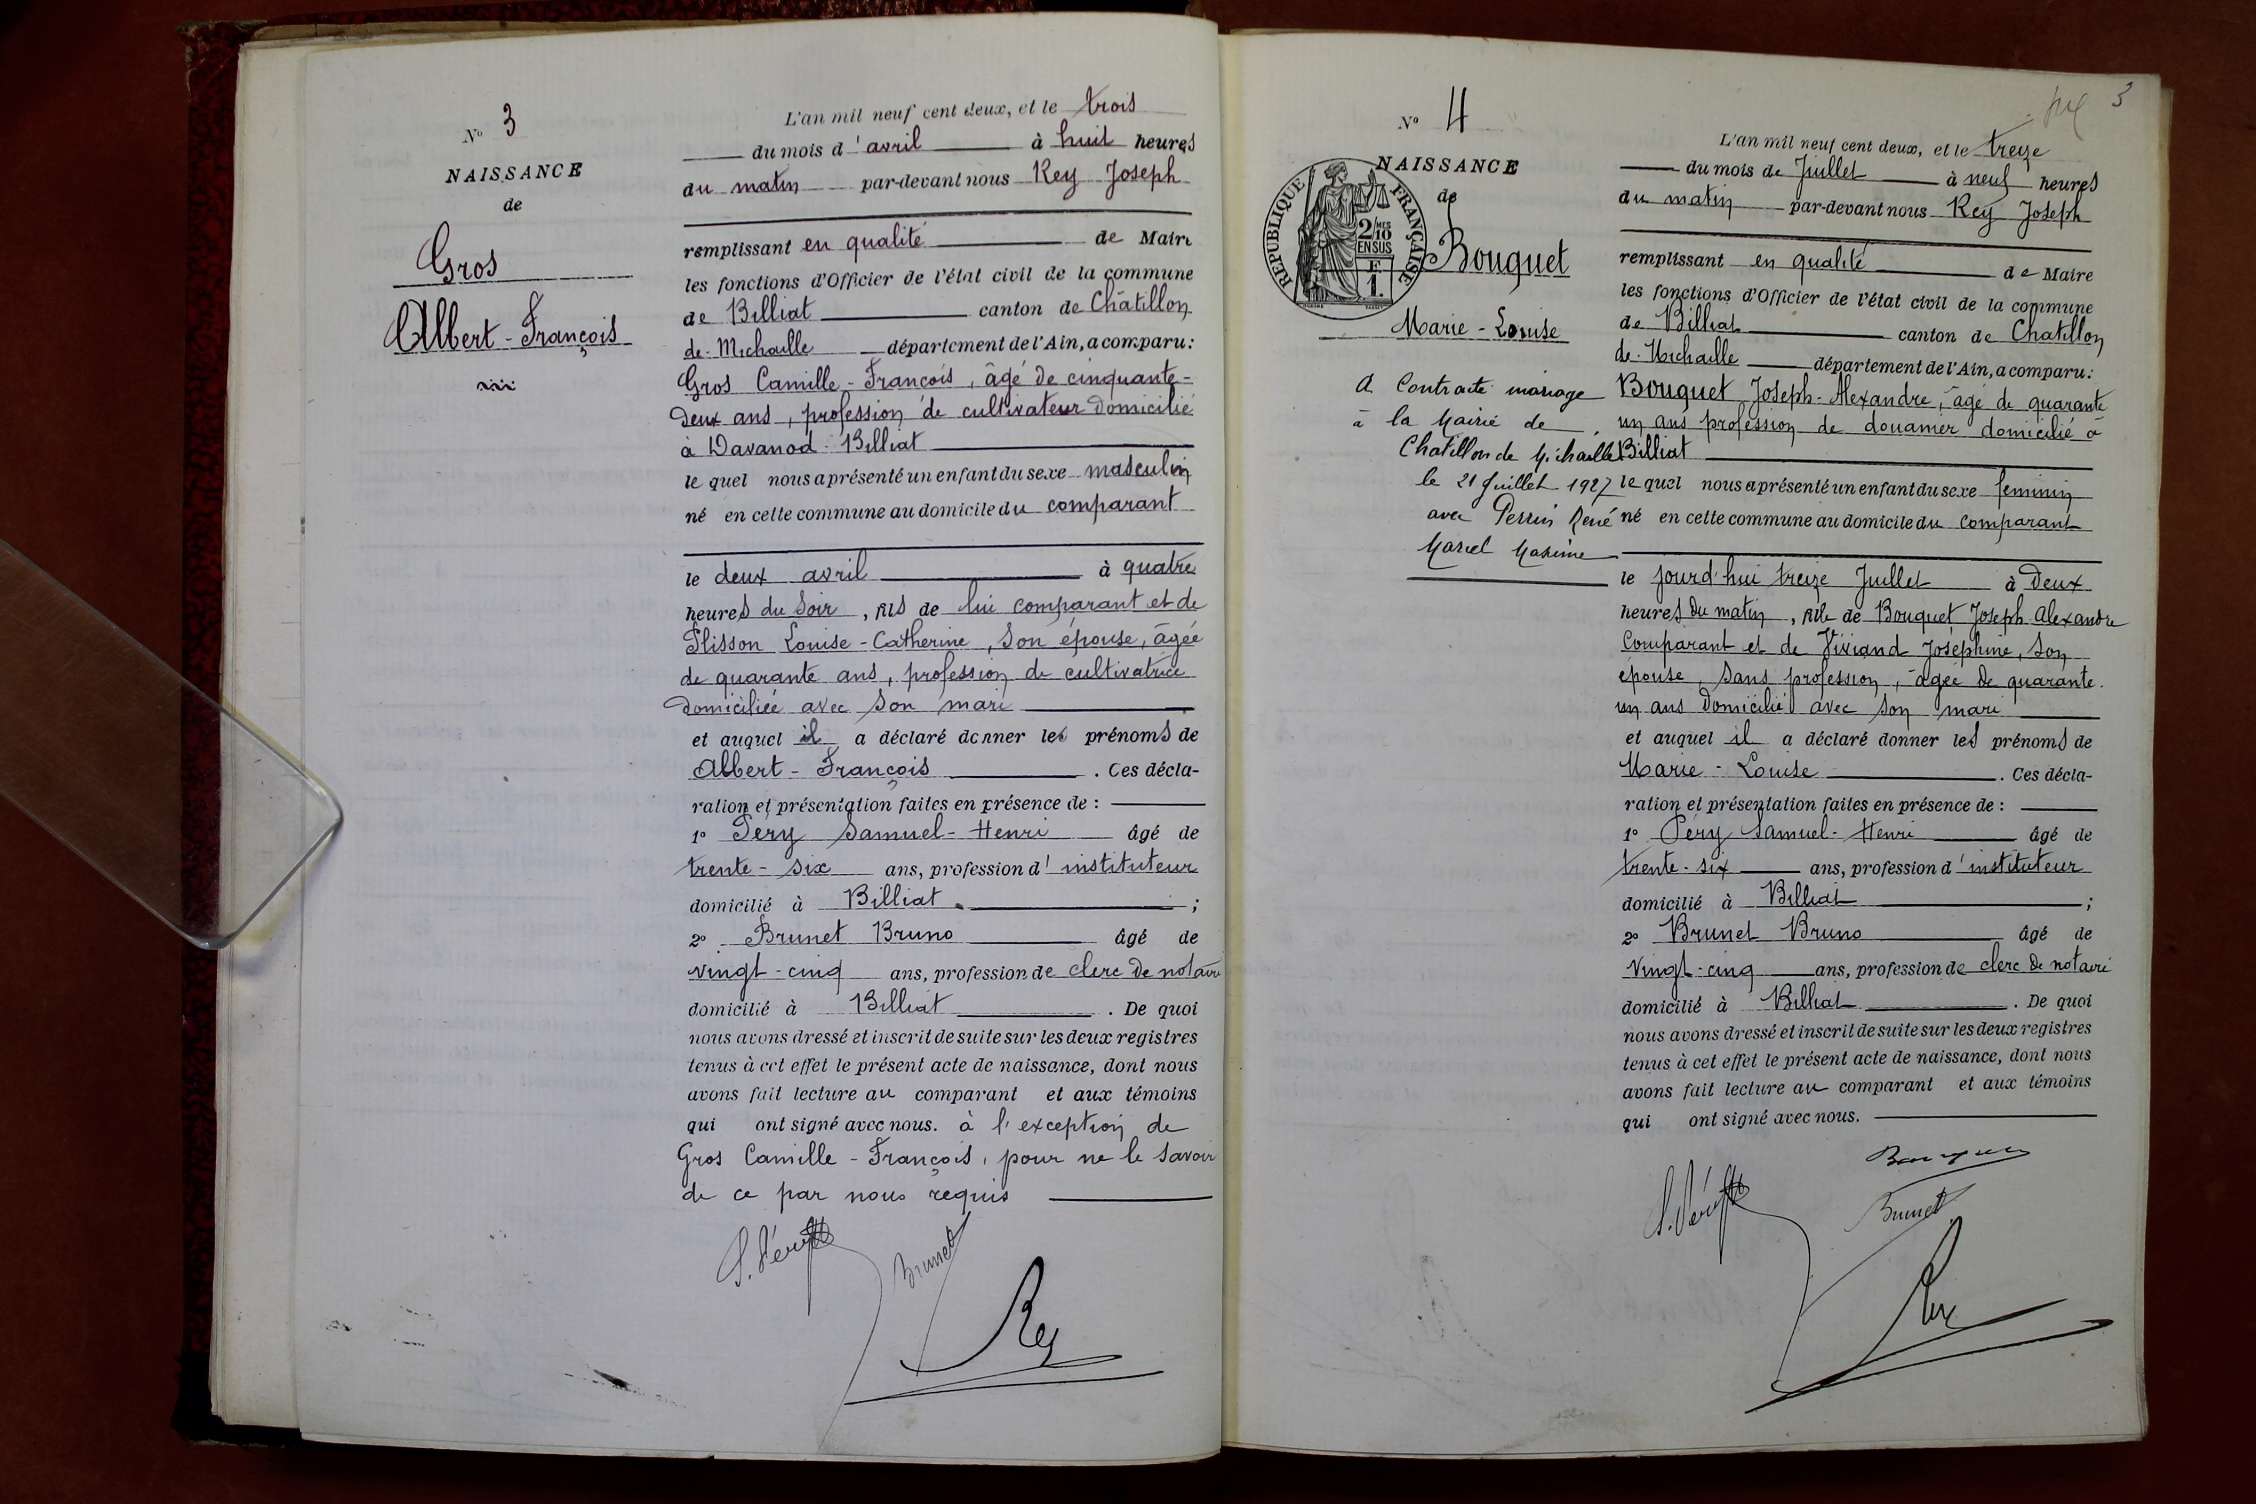 N° 3
NAISSANCE
de
Gros
Albert-François
L'an mil neuf cent deux, et le trois
du mois d'avril à huit heures
du matin par-devant nous Rey Joseph
remplissant en qualité de Maire
les fonctions d'Officier de l'état civil de la commune
de Billiat canton de Châtillon
de-Michaille département de l'Ain, a comparu:
Gros Camille-François, âgé de cinquante-
deux ans, profession de cultivateur domicilié
à Davanod-Billiat
le quel nous a présenté un enfant du sexe masculin
né en cette commune au domicile du comparant
le deux avril à quatre
heures du soir, fils de lui comparant et de
Plisson Louise-Catherine, son épouse, âgée
de quarante ans, profession de cultivatrice
domiciliée avec son mari
et auquel il a déclaré donner les prénoms de
Albert-François. Ces décla-
ration et présentation faites en présence de :
1° Péry Samuel-Henri âgé de
trente-six ans, profession d'instituteur
domicilié à Billiat ;
2° Brunet Bruno âgé de
vingt-cinq ans, profession de clerc de notaire
domicilié à Billiat. De quoi
nous avons dressé et inscrit de suite sur les deux registres
tenus à cet effet le présent acte de naissance, dont nous
avons fait lecture au comparant et aux témoins
qui ont signé avec nous. à l'exception de
Gros Camille-François, pour ne le savoir
de ce par nous requis
S. Péry
Brunet
Rey
3
N° 4
NAISSANCE
de
REPUBLIQUE FRANÇAISE
2/10 MES
EN SUS
F.
1.
Bouquet
Marie-Louise
A Contracté mariage
à la Mairie de
Chatillon de Michaille
le 21 Juillet 1927
avec Perrin René
Marcel Maxime
L'an mil neuf cent deux, et le treize
du mois de Juillet à neuf heures
du matin par-devant nous Rey Joseph
remplissant en qualité de Maire
les fonctions d'Officier de l'état civil de la commune
de Billiat canton de Chatillon
de-Michaille département de l'Ain, a comparu:
Bouquet Joseph-Alexandre, âgé de quarante
un ans profession de douanier domicilié à
Billiat
le quel nous a présenté un enfant du sexe feminin
né en cette commune au domicile du comparant
le jourd'hui treize Juillet à deux
heures du matin, fille de Bouquet Joseph Alexandre
Comparant et de Viviand Joséphine, son
épouse, sans profession, âgée de quarante.
un ans domicilié avec son mari
et auquel il a déclaré donner les prénoms de
Marie-Louise. Ces décla-
ration et présentation faites en présence de :
1° Péry Samuel-Henri âgé de
trente-six ans, profession d'instituteur
domicilié à Billiat ;
2° Brunet Bruno âgé de
vingt-cinq ans, profession de clerc de notaire
domicilié à Billiat. De quoi
nous avons dressé et inscrit de suite sur les deux registres
tenus à cet effet le présent acte de naissance, dont nous
avons fait lecture au comparant et aux témoins
qui ont signé avec nous.
Bouquet
S. Péry
Brunet
Rey